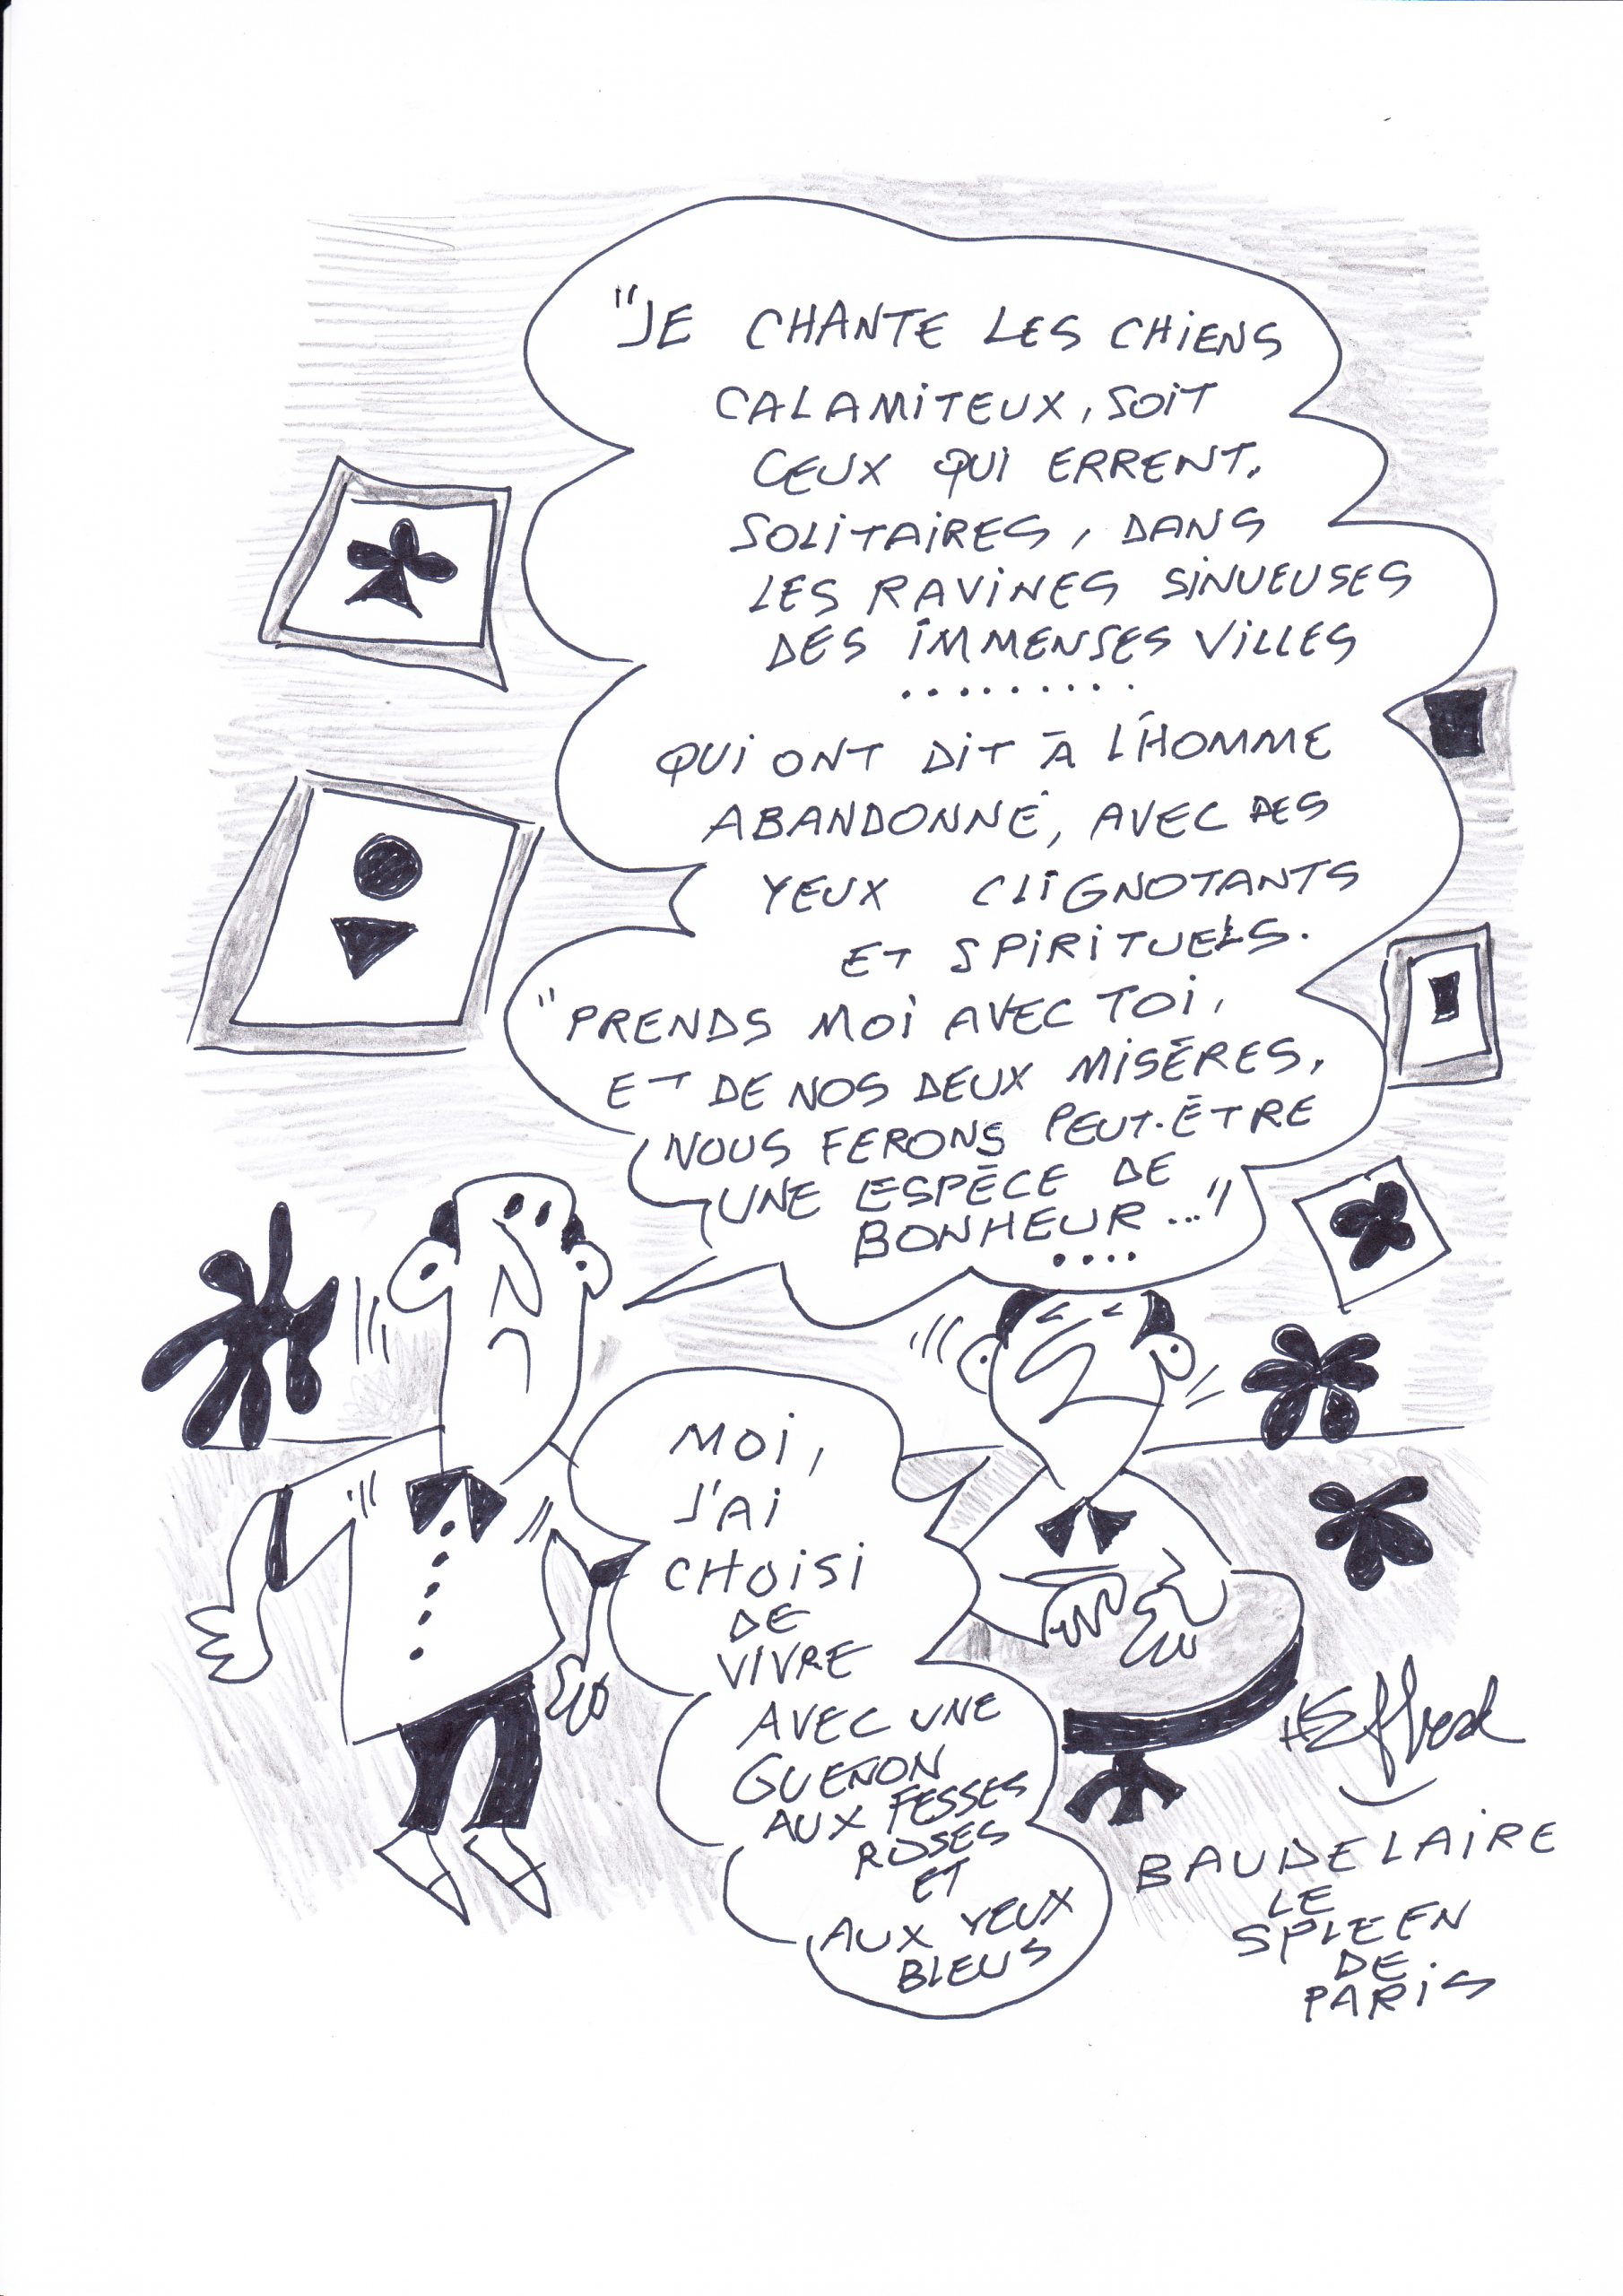 "JE CHANTE LES CHIENS
CALAMITEUX, SOIT
CEUX QUI ERRENT,
SOLITAIRES, DANS
LES RAVINES SINUEUSES
DES IMMENSES VILLES
.........
QUI ONT DIT À L'HOMME
ABANDONNÉ, AVEC DES
YEUX CLIGNOTANTS
ET SPIRITUELS.
"PRENDS MOI AVEC TOI,
ET DE NOS DEUX MISÈRES,
NOUS FERONS PEUT-ÊTRE
UNE ESPÈCE DE
BONHEUR..."
....
MOI,
J'AI
CHOISI
DE
VIVRE
AVEC UNE
GUENON
AUX FESSES
ROSES
ET
AUX YEUX
BLEUS
BAUDELAIRE
LE
SPLEEN
DE
PARIS